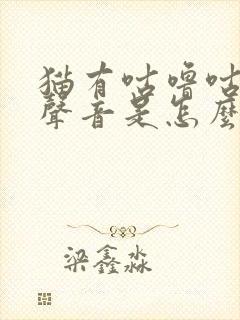 猫有咕噜咕
聲音是怎麼
梁鑫淼